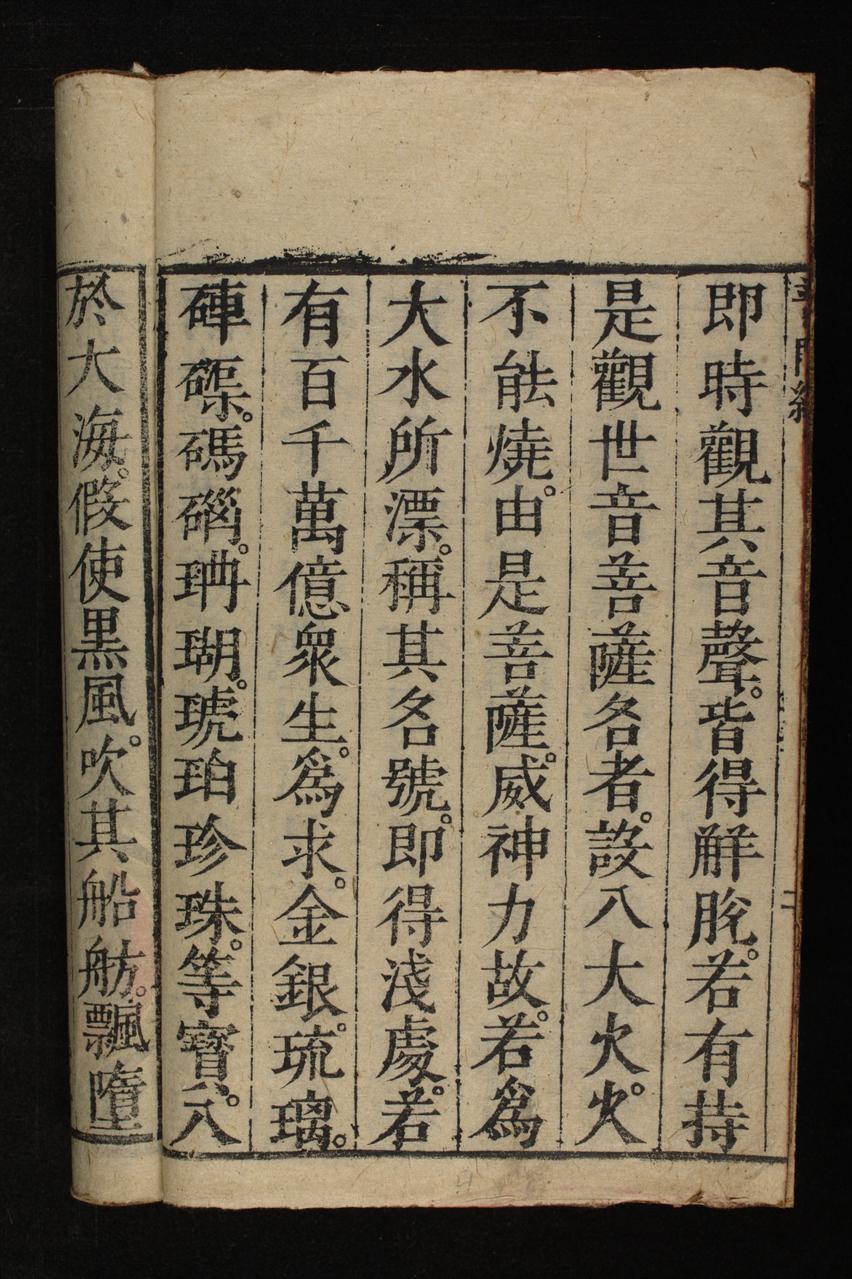 普門經
二
即時觀其音聲。皆得觧脫。若有持
是觀世音菩薩名者。設入大火。火
不能燒。由是菩薩。威神力故。若爲
大水所漂。稱其名號。即得淺處。若
有百千萬億衆生。爲求。金銀。琉璃。
硨磲。碼碯。珊瑚。琥珀珍珠。等寳。入
於大海。假使黒風。吹其船舫。飄墮